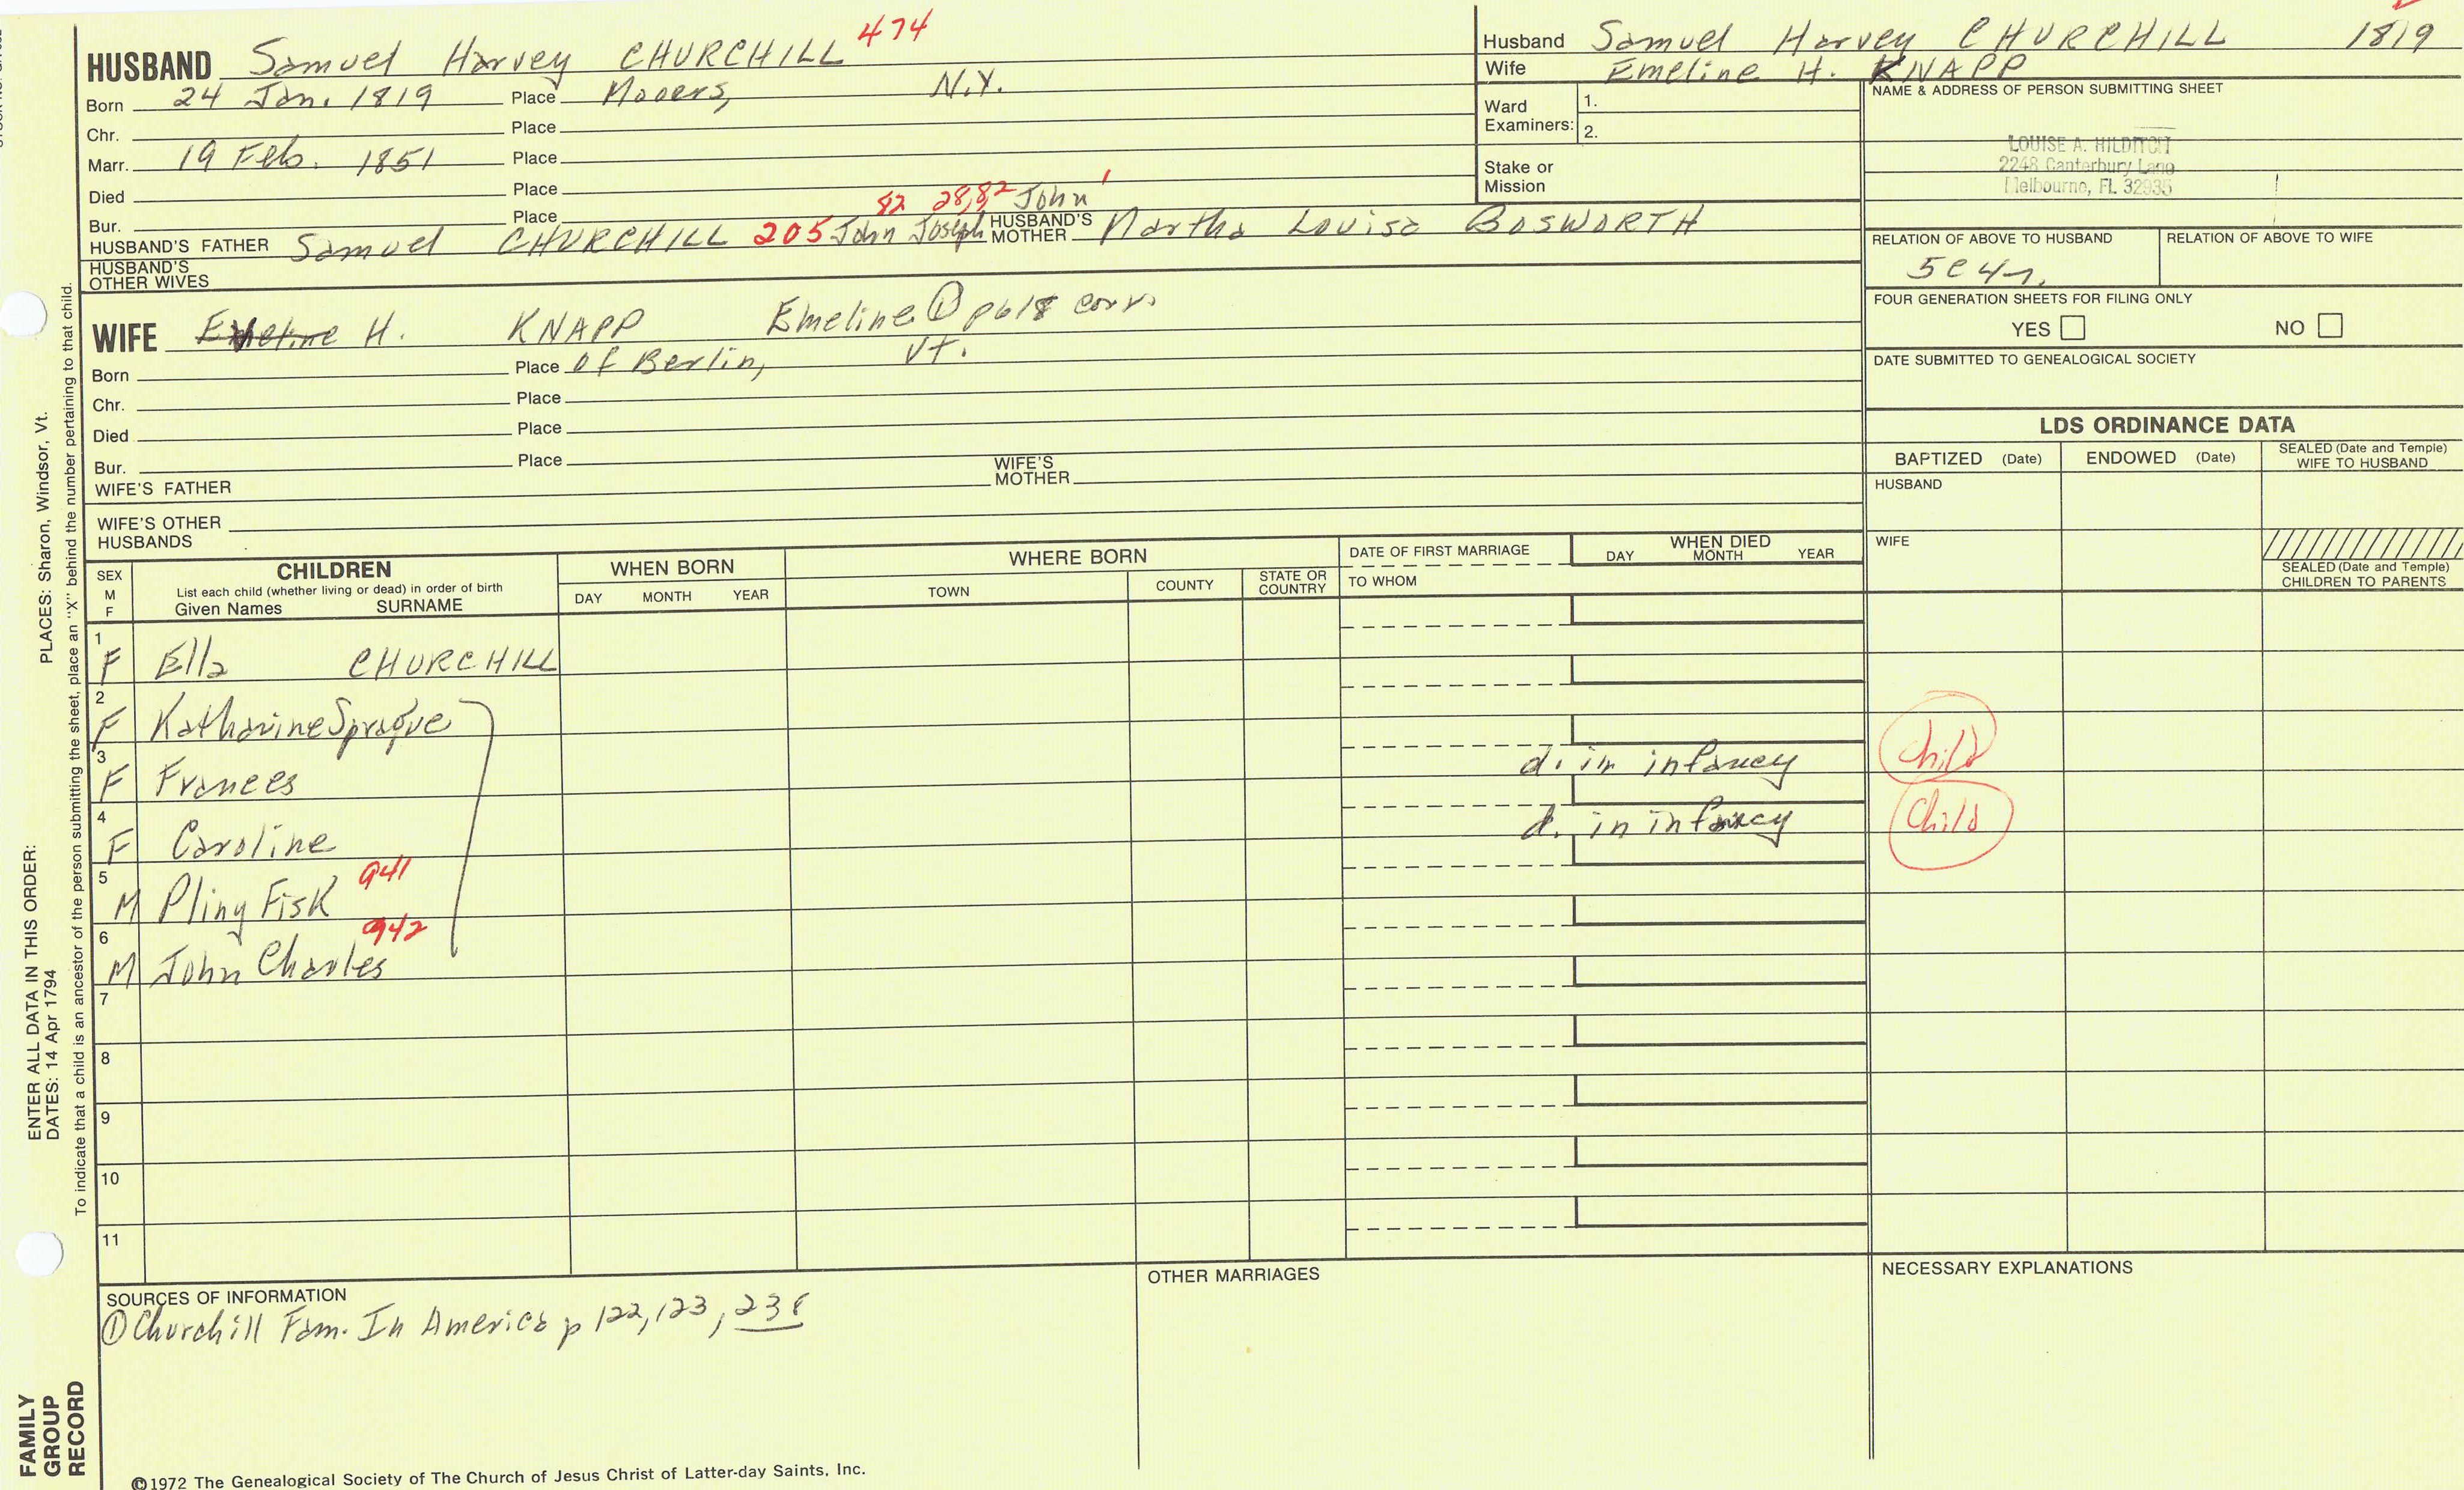 HUSBAND Samuel Harvey CHURCHILL 474
Born 24 Jan. 1819 Place Mooers, N.Y.
Chr. Place
Marr. 19 Feb. 1851 Place
Died Place
Bur. Place
82 28,82 John 1
HUSBAND'S FATHER Samuel CHURCHILL 205 John Joseph HUSBAND'S MOTHER Martha Louisa BOSWORTH
HUSBAND'S OTHER WIVES
Husband Samuel Harvey CHURCHILL 1819
Wife Emeline H. KNAPP
Ward Examiners: 1.
2.
Stake or Mission
NAME & ADDRESS OF PERSON SUBMITTING SHEET
LOUISE A. HILDITCH
2248 Canterbury Lane
Melbourne, FL 32935
RELATION OF ABOVE TO HUSBAND RELATION OF ABOVE TO WIFE
5C4r.
FOUR GENERATION SHEETS FOR FILING ONLY
YES NO
DATE SUBMITTED TO GENEALOGICAL SOCIETY
WIFE Emeline H. KNAPP Emeline ① p618 corr.
Born Place of Berlin, Vt.
Chr. Place
Died Place
Bur. Place
WIFE'S FATHER WIFE'S MOTHER
WIFE'S OTHER HUSBANDS
LDS ORDINANCE DATA
BAPTIZED (Date) ENDOWED (Date) SEALED (Date and Temple) WIFE TO HUSBAND
HUSBAND
WIFE
SEALED (Date and Temple) CHILDREN TO PARENTS
SEX M F
CHILDREN
List each child (whether living or dead) in order of birth
Given Names SURNAME
WHEN BORN
DAY MONTH YEAR
WHERE BORN
TOWN COUNTY STATE OR COUNTRY
DATE OF FIRST MARRIAGE
TO WHOM
WHEN DIED
DAY MONTH YEAR
1 F Ella CHURCHILL
2 F Katharine Sprague
3 F Frances d. in infancy Child
4 F Caroline d. in infancy Child
5 M Pliny Fisk 941
6 M John Charles 942
7
8
9
10
11
SOURCES OF INFORMATION
① Churchill Fam. In America p 122, 123, 238
OTHER MARRIAGES
NECESSARY EXPLANATIONS
©1972 The Genealogical Society of The Church of Jesus Christ of Latter-day Saints, Inc.
FAMILY GROUP RECORD
ENTER ALL DATA IN THIS ORDER:
DATES: 14 Apr 1794
PLACES: Sharon, Windsor, Vt.
To indicate that a child is an ancestor of the person submitting the sheet, place an "X" behind the number pertaining to that child.